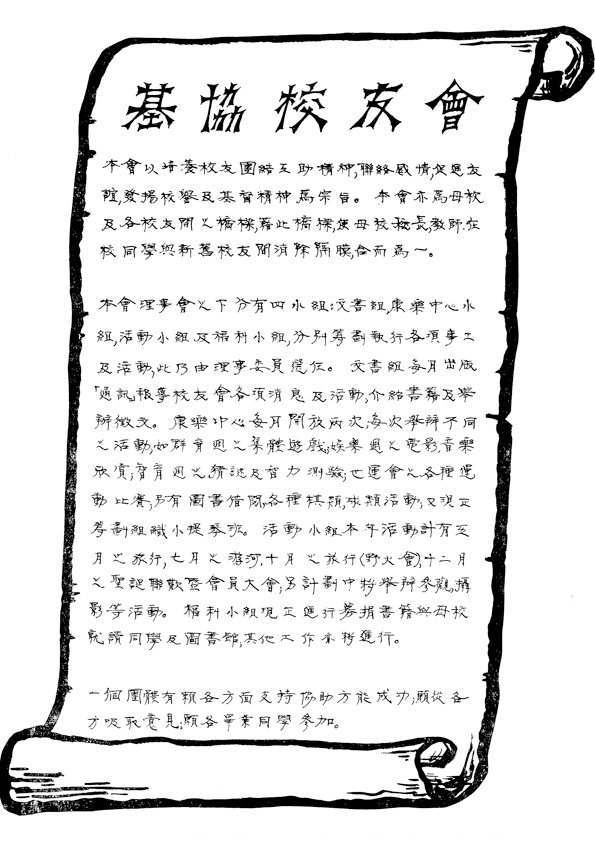 基協校友會
本會以培養校友團結互助精神,聯絡感情,促進友
誼,發揚校譽及基督精神為宗旨。本會亦為母校
及各校友間之橋樑,藉此橋樑,使母校校長,教師.在
校同學與新舊校友間消除隔膜,合而為一。
本會理事會之下分有四小組:文書組,康樂中心小
組,活動小組及福利小組,分別籌劃執行各項事工
及活動,此乃由理事委員選任。文書組每月出版
「通訊」報導校友會各項消息及活動,介紹書籍及舉
辦徵文。康樂中心每月開放兩次,每次舉辦不同
之活動,如群育週之集體遊戲;娛樂週之電影音樂
欣賞;智育週之猜謎及智力測驗;乜運會之各種運
動比賽;另有圖書借閱,各種棋類,球類活動;又現正
籌劃組織小提琴班。活動小組本年活動計有五
月之旅行,七月之游河.十月之旅行(野火會),十二月
之聖誕聯歡暨會員大會;另計劃中將舉辦參觀,攝
影等活動。福利小組現正進行募捐書籍與母校
就讀同學及圖書館,其他工作亦將進行。
一個團體有賴各方面支持協助方能成功;願從各
方吸取意見;願各畢業同學參加。